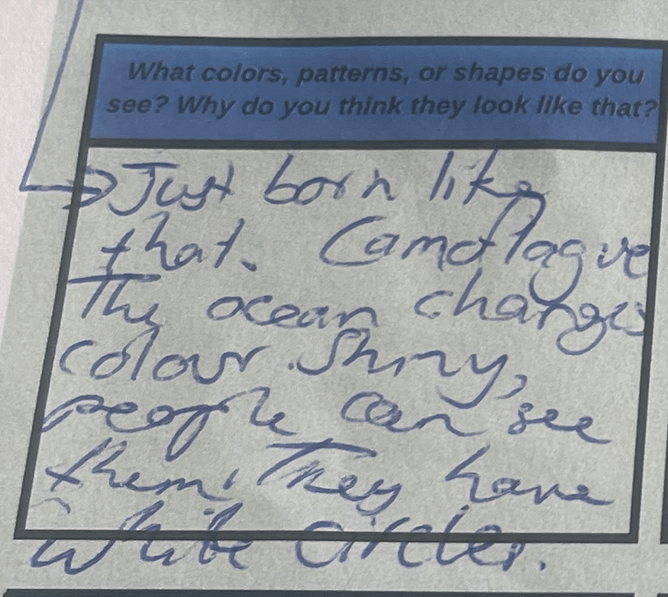 What colors, patterns, or shapes do you
see? Why do you think they look like that?
Just born like
that. Camoflague
The ocean changes
colour. Shiny,
people can see
them. They have
white circles.